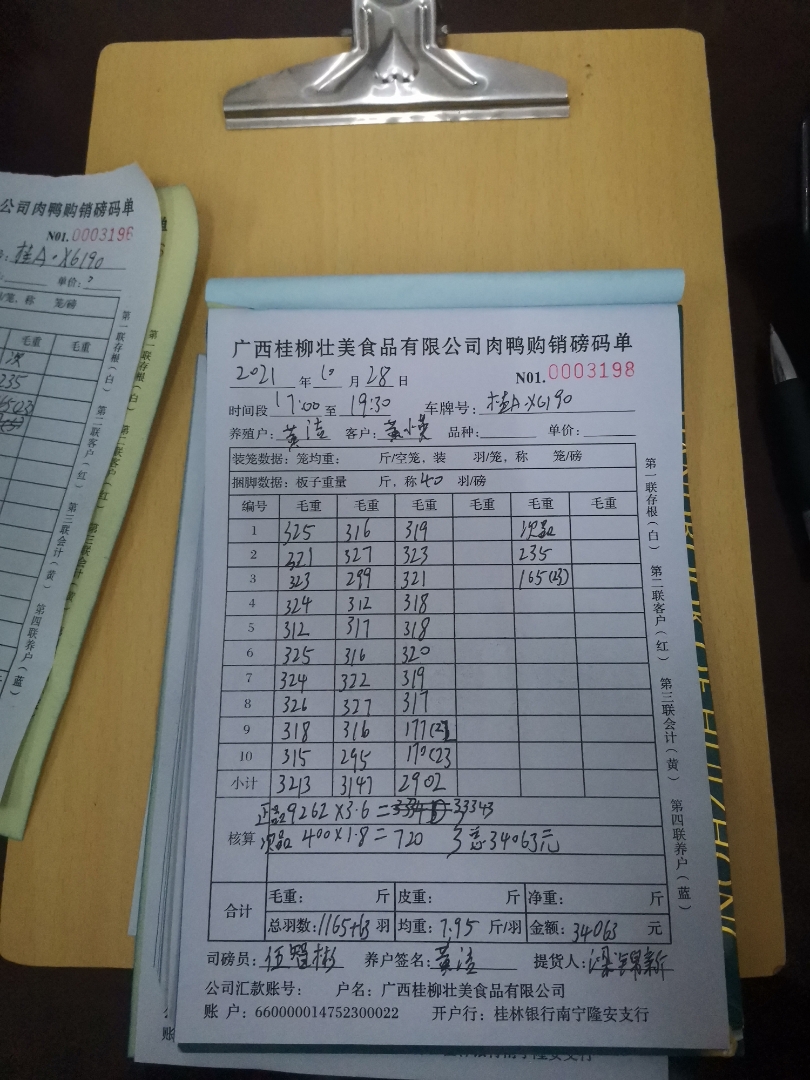 公司肉鸭购销磅码单
N01.0003198
桂A·X6190
单价:
笼/磅
毛重 毛重
235
第一联存根(白) 第二联客户(红) 第三联会计(黄) 第四联养户(蓝)
广西桂柳壮美食品有限公司肉鸭购销磅码单
2021 年 10 月 28 日 N01.0003198
时间段 17:00 至 19:30 车牌号: 桂A·X6190
养殖户: 黄洁 客户: 黄小英 品种: 单价:
装笼数据: 笼均重: 斤/空笼, 装 羽/笼, 称 笼/磅
捆脚数据: 板子重量 斤, 称 40 羽/磅
编号 毛重 毛重 毛重 毛重 毛重 毛重
1 325 316 319 次品
2 321 327 323 235
3 323 299 321 165(23)
4 324 312 318
5 312 317 318
6 325 316 320
7 324 322 319
8 326 327 317
9 318 316 177(23)
10 315 295 170(23
小计 3213 3147 2902
正品 9262×3.6= 33343
核算 次品 400×1.8=720 总34063元
合计 毛重: 斤 皮重: 斤 净重: 斤
总羽数: 1165+63 羽 均重: 7.95 斤/羽 金额: 34063 元
司磅员: 养户签名: 黄洁 提货人: 梁锦新
公司汇款账号: 户名: 广西桂柳壮美食品有限公司
账 户: 660000014752300022 开户行: 桂林银行南宁隆安支行
第一联存根(白) 第二联客户(红) 第三联会计(黄) 第四联养户(蓝)